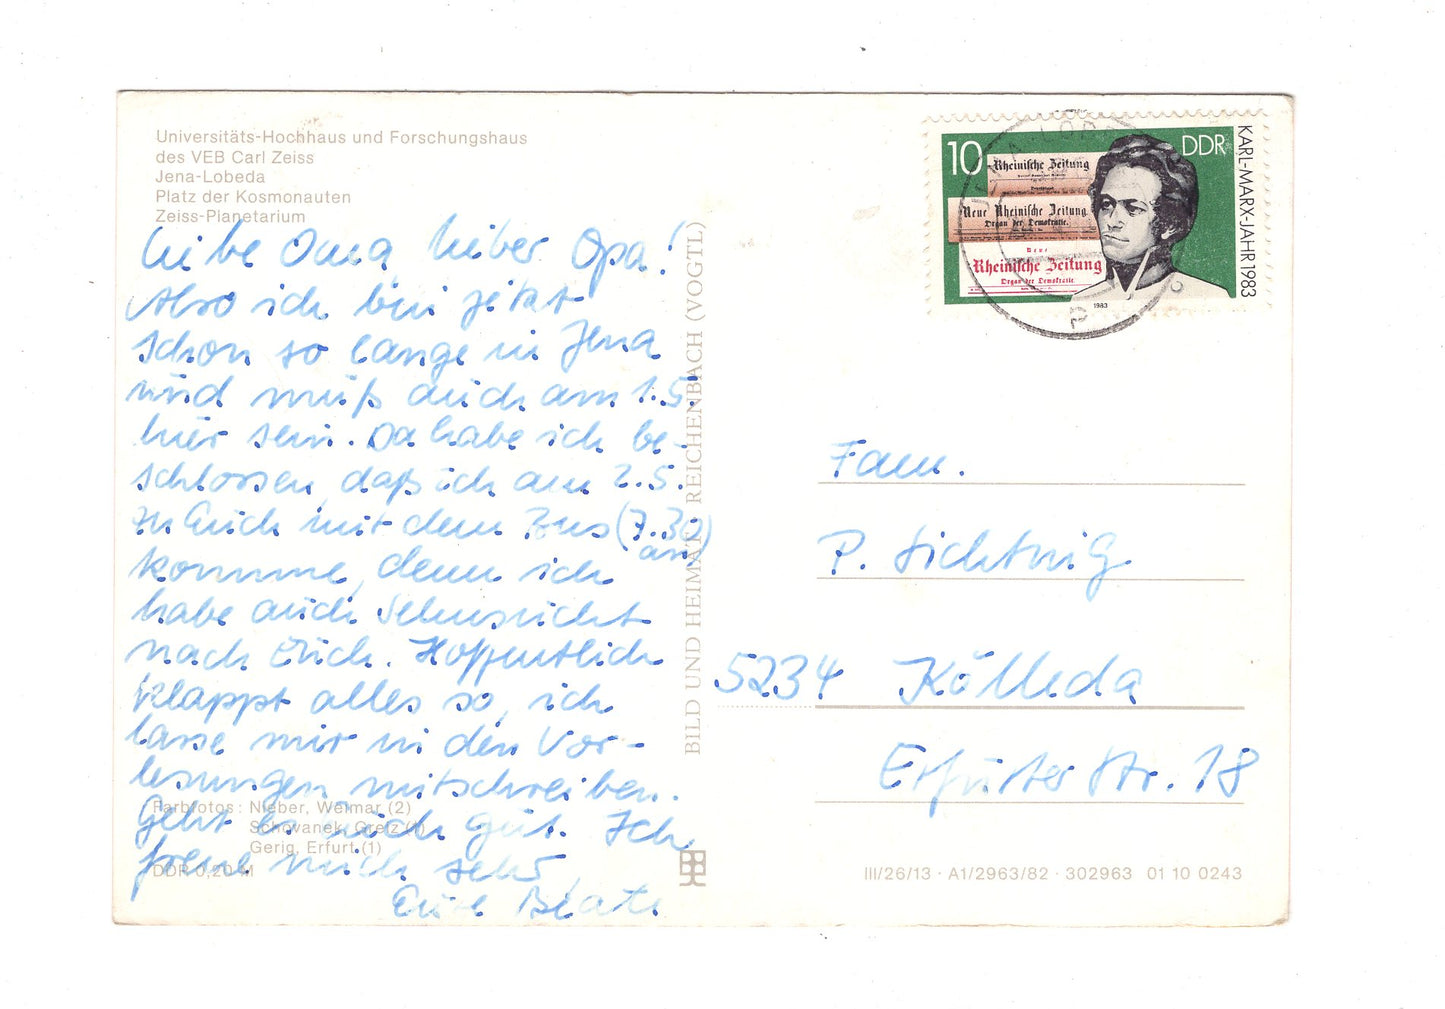 Universitäts-Hochhaus und Forschungshaus
des VEB Carl Zeiss
Jena-Lobeda
Platz der Kosmonauten
Zeiss-Planetarium
Liebe Oma, lieber Opa!
Also ich bin jetzt
schon so lange in Jena
und muß auch am 1.5.
hier sein. Da habe ich be-
schlossen, daß ich am 2.5.
zu Euch mit dem Bus (7.30
an)
komme, denn ich
habe auch Sehnsucht
nach Euch. Hoffentlich
klappt alles so, ich
lasse mir in den Vor-
lesungen mitschreiben.
Geht es Euch gut. Ich
freue mich sehr,
Eure Beate
Farbfotos: Nieber, Weimar (2)
Schovanek, Greiz (1)
Gerig, Erfurt (1)
DDR 0,20 M
BILD UND HEIMAT REICHENBACH (VOGTL)
10
DDR
KARL-MARX-JAHR 1983
Rheinische Zeitung
Neue Rheinische Zeitung
Organ der Demokratie.
Neue
Rheinische Zeitung
Organ der Demokratie.
1983
Fam.
P.
5234 Kölleda
Erfurter Str. 18
III/26/13 · A1/2963/82 · 302963 01 10 0243